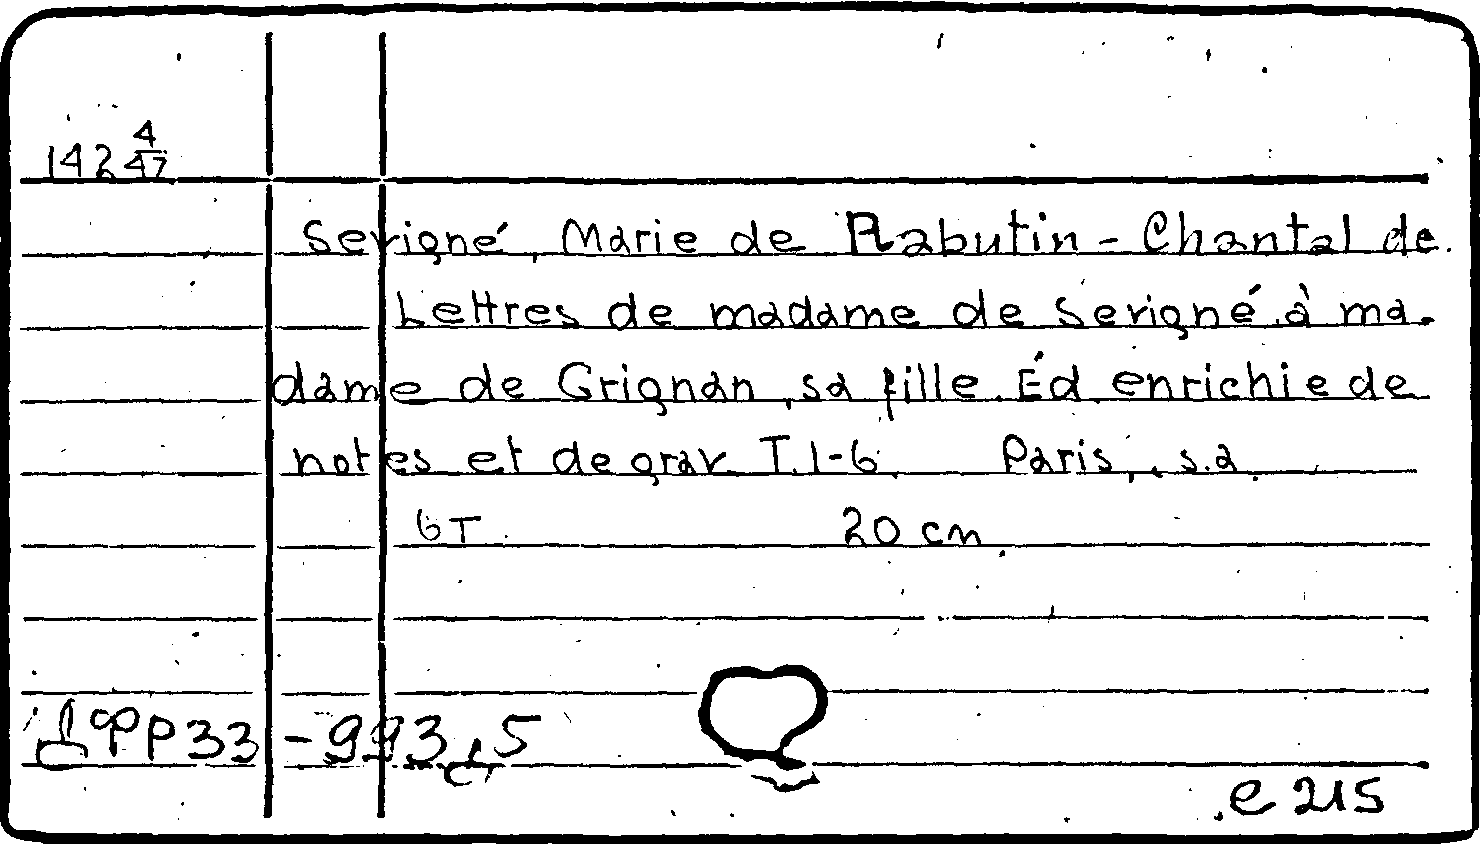 142 4/47
Sevigné, Marie de Rabutin-Chantal de.
Lettres de madame de Sevigné à ma-
dame de Grignan, sa fille. Éd. enrichie de
notes et de grav. T. 1-6. Paris, s.a.
6 T. 20 cm.
33-993
e 215